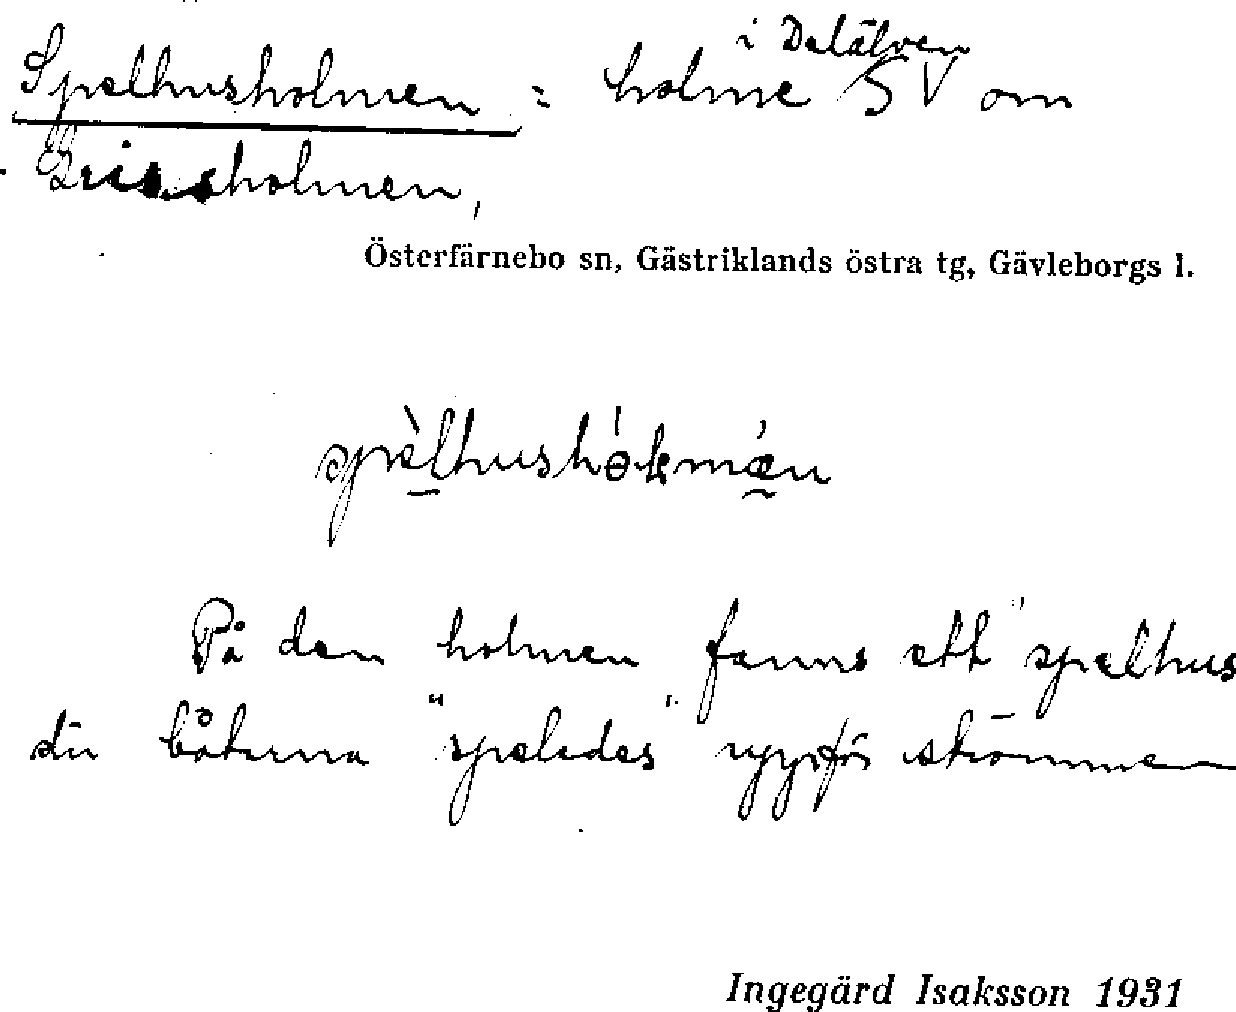 Spelhusholmen = holme i Dalälven SV om
Grissholmen,
Österfärnebo sn, Gästriklands östra tg, Gävleborgs l.
På den holmen fanns ett "spelhus"
där båtarna "spelades" uppför strömmen
Ingegärd Isaksson 1931